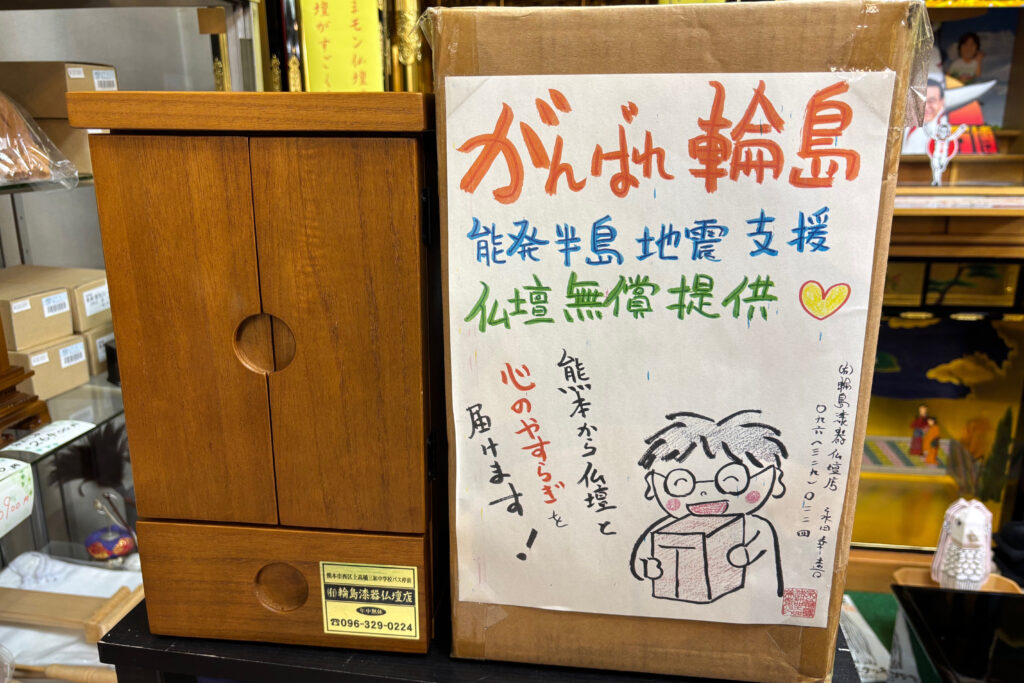 ミモン仏壇
壇がすごく
がんばれ輪島
能発半島地震支援
仏壇無償提供
熊本から仏壇と
心のやすらぎを
届けます!
(有)輪島漆器仏壇店 永田幸喜
〇九六(三二九)〇二二四
熊本市西区上高橋三和中学校バス停前
(有)輪島漆器仏壇店
年中無休
☎096-329-0224